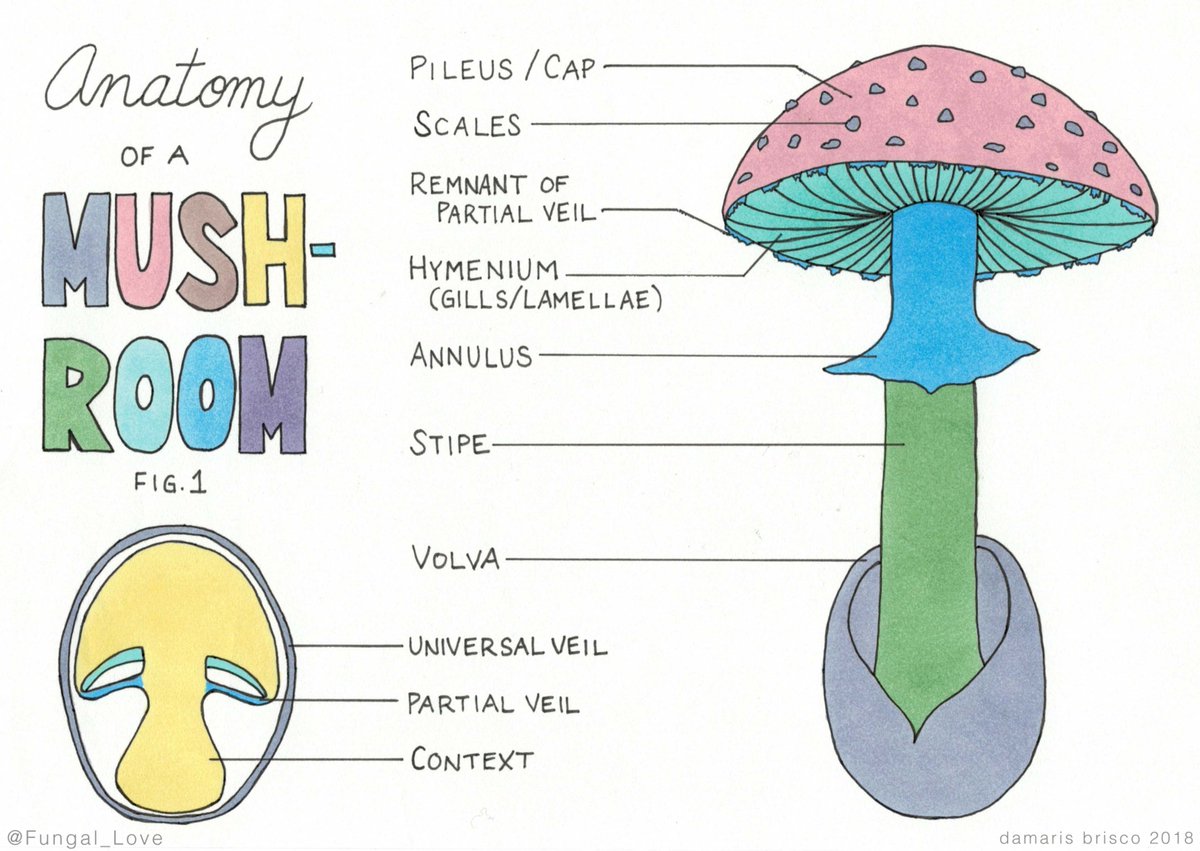 Anatomy
OF A
MUSH-
ROOM
FIG.1
PILEUS / CAP
SCALES
REMNANT OF
PARTIAL VEIL
HYMENIUM
(GILLS/LAMELLAE)
ANNULUS
STIPE
VOLVA
UNIVERSAL VEIL
PARTIAL VEIL
CONTEXT
@Fungal_Love
damaris brisco 2018